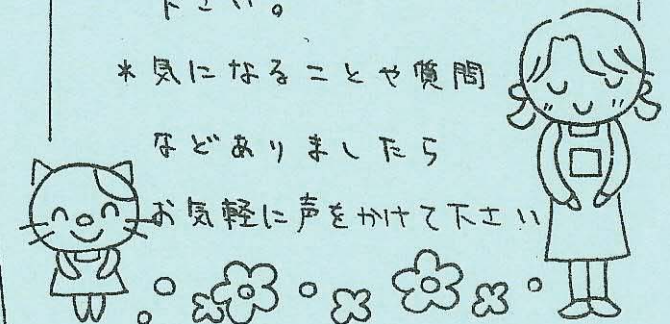 下さい。
*気になることや質問
などありましたら
お気軽に声をかけて下さい